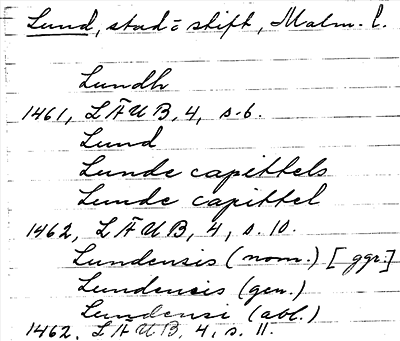 Lund, stad = stift, Malm. l.
Lundh
1461, LÄUB, 4, s. 6.
Lund
Lunde capittels
Lunde capittel
1462, LÄUB, 4, s. 10.
Lundensis (nom.) [ggr.]
Lundensis (gen.)
Lundensi (abl.)
1462, LÄUB, 4, s. 11.